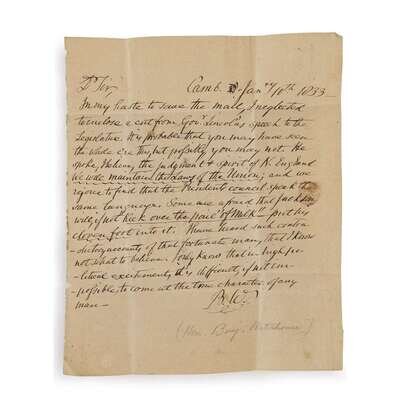 Dr Sir, Camb. Jany 10th 1833
In my haste to save the mail, I neglected
to enclose a cut from Govr Lincoln's speech to the
Legislature. It is probable that you may have seen
the whole ere this, but possibly you may not. He
spoke, I believe, the judgment & spirit of N. England
We will maintain the Laws of the Union; and we
rejoice to find that the Presidents council speak the
same language. Some are afraid that Jackson
will, if not kick over the pail of Milk – put his
cloven foot into it. I have heard such contra
-dictory accounts of that fortunate man, that I know
not what to believe. I only know that in high po
-litical excitements it is difficult, if not im
-possible to come at the true character of any
man –
B. W.
(Hon. Benj. Waterhouse)